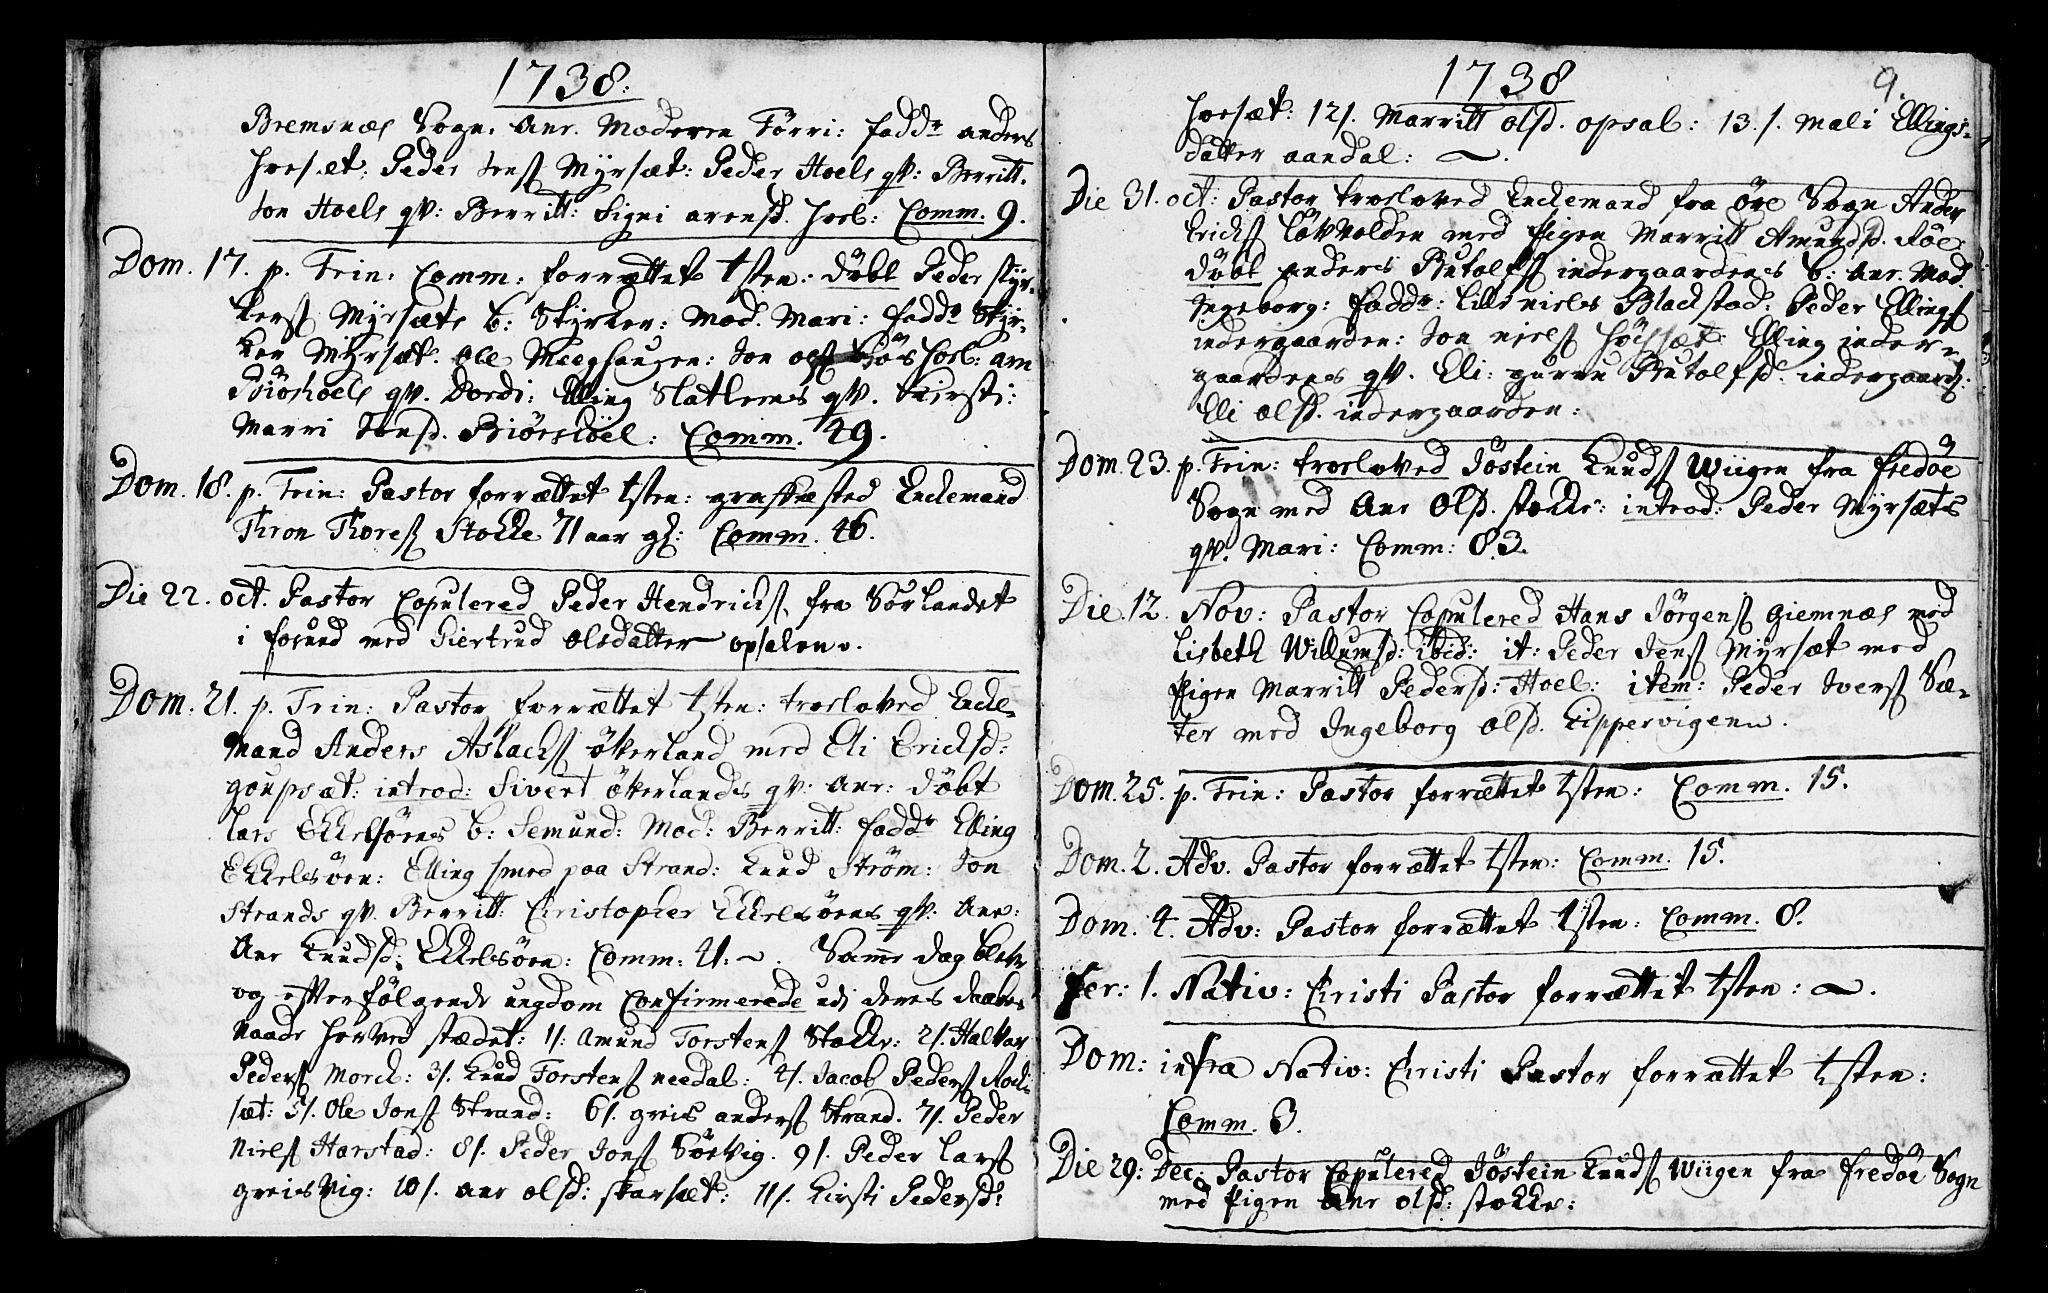 1738.
Bremsnæs Sogn. Anr. Moderen Törri: fadd^r anders
Hoesæt: Peder Jens Myrsæt: Peder Hoels qv: Berritt.
Jon Hoels qv: Berritt: Signi arensd. Hoel: Comm. 9.
Dom. 17. p. Trin: Comm: forrættet tsten: döbt Peder styr-
kers Myrsæts b: Styrker: Mod. Mari: fadd^r Styr-
ker Myrsæt. Ole Meeghaugen: Jon ols hoel: arn
qv. Dordi: Elling Slatlems qv. Kirsti:
Marri Jonsd. Biörshoel: Comm. 49.
Dom. 18. p. Trin: Pastor forrættet tsten: graffæsted Enckemand
Thron Thores Stocke 71 aar gl: Comm. 46.
Die 22. oct. Pastor Copulered Peder Hendrichs. fra Sörlandet
i med Giertrud Olsdatter opsalen.
Dom. 21. p. Trin: Pastor forrættet tsten: troeloved Encke-
mand Anders Aslachs ökerland med Eli Ericksd:
goupsæt: introd: Sivert ökerlands qv: Anr: döbt
Lars Ekkelsöens b: Semund: Mod: Berritt: fadd^r Elling
Ekkelsöen: Elling smed paa Strand: Knud Ström: Jon
Strands qv. Berritt: Christopher Ekkelsöens qv: Anr:
Anr Knudsd. Ekkelsöen: Comm: 21: Samme dag bleve
og efterfölgende ungdom Confirmerede udi deres daabes
Naade her ved stædet: 1/: Amund Torstens Stocke: 2/. Halvor
Peders Morck: 3/. Knud Torstens needal: 4/. Jacob Peders Rock-
sæt: 5/. Ole Jons Strand: 6/. greis anders Strand. 7/. Peder
Niels Harstad: 8/. Peder Jons Sörvig. 9/. Peder Lars
greisvig: 10/. Anr olsd: skarsæt: 11/. Kirsti Pedersd:
1738
9.
Hoesæt: 12/. Marritt olsd. opsal: 13./. Mali Ellings-
datter aandal:
Die 31. oct: Pastor troeloved Enckemand fra öre Sogn Ander
Ericks Lökvolden med Pigen Marritt Amundsd. Röe:
döbt Anders Butolfs indergaardens b: Anr. Mod.
Ingeborg: fadd^r: Lille niels Blackstad: Peder Ellings
indergaarden: Jon niels Höysæt: Elling inder-
gaardens qv. Eli: guru Butolfsd. indergaard:
Eli olsd. indergaarden:
Dom. 23. p. Trin: troeloved Jöstein Knuds Wiigen fra fredöe
Sogn med Anr Olsd. stocke: introd: Peder Myrsæts
qv. Mari: Comm: 83.
Die. 12. Nov: Pastor Copulered Hans Jörgens giemnæs med
Lisbeth Willumsd: ibid: it: Peder Jens Myrsæt med
Pigen Marritt Pedersd: Hoel: item: Peder Ivers Sæ-
ter med Ingeborg olsd. Kippervigen.
Dom. 25. p. Trin: Pastor forrættet tsten: Comm. 15.
Dom. 2. Adv. Pastor forrættet tsten: Comm. 15.
Dom. 4. Adv: Pastor forrættet tsten: Comm. 8.
Fer: 1. Nativ: Christi Pastor forrættet tsten:
Dom: infra Nativ: Christi Pastor forrættet tsten:
Comm. 3.
Die 29: Dec: Pastor Copulered Jöstein Knuds Wiigen fra fredöe Sogn
med Pigen Anr olsd: stocke: